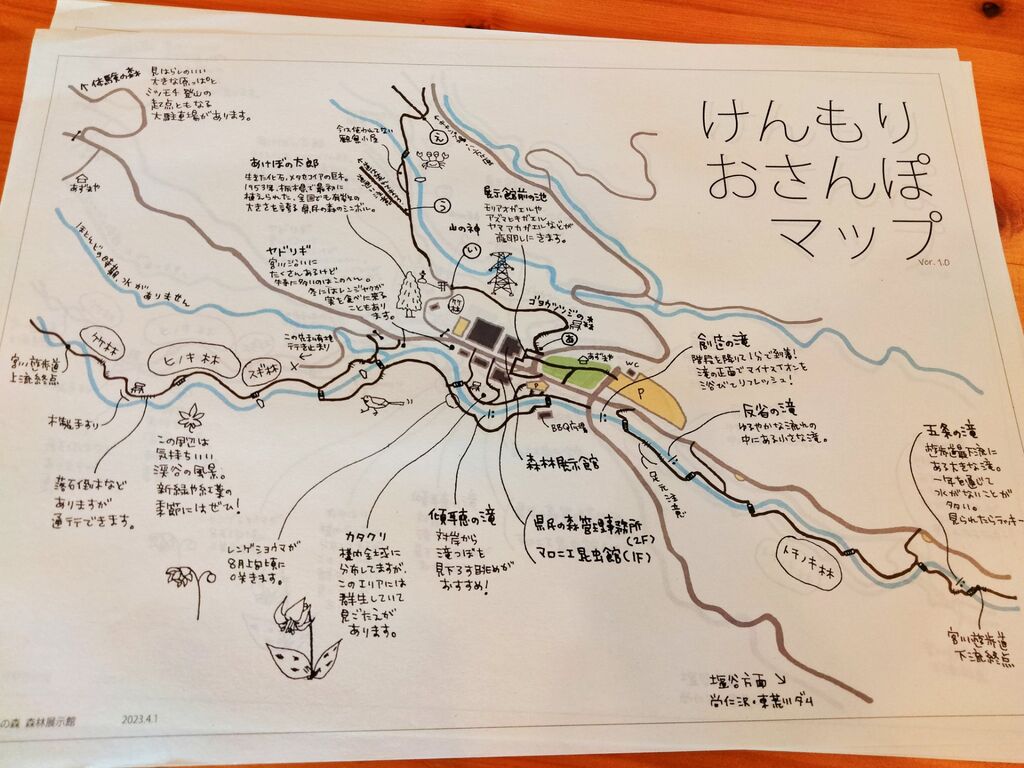 けんもり
おさんぽ
マップ
Ver. 1.0
体験の森
見はらしのいい
大きな原っぱと
ミツモチ登山の
起点ともなる
大駐車場があります。
あずまや
ほとんどの時期、水が
ありません
あけぼの太郎
生きた化石、メタセコイアの巨木。
1953年、栃木県で最初に
植えられた、全国でも有数の
大きさを誇る県民の森のシンボル。
今は使われてない
観察小屋
え
う
山の神
い
展示館前の池
モリアオガエルや
アズマヒキガエル
ヤマアカガエルなどが
産卵しにきます。
ヤドリギ
宮川沿いに
たくさんあるけど
特に多いのはこのへん。
冬にはレンジャクが
実を食べに来る
こともあり
ます。
ゴヨウツツジの森
あ
あずまや
WC
P
P
創造の滝
階段を降りて1分で到着!
滝の正面でマイナスイオンを
浴びてリフレッシュ!
反省の滝
ゆるやかな流れの
中にある小さな滝。
五条の滝
遊歩道最下流に
ある大きな滝。
一年を通じて
水がないことが
多い。
見られたらラッキー
宮川遊歩道
上流終点
ケヤキ林
ヒノキ林
スギ林
この先工事通行止
行き止まり
木製手すり
落石倒木など
ありますが
通行できます。
この周辺は
気持ちいい
渓谷の風景。
新緑や紅葉の
季節にはぜひ!
レンゲショウマが
8月上旬頃に
咲きます。
カタクリ
構内全域に
分布してますが、
このエリアには
群生していて
見ごたえが
あります。
傾聴の滝
対岸から
滝つぼを
見下ろす眺めが
おすすめ!
BBQ広場
森林展示館
県民の森管理事務所
(2F)
マロニエ昆虫館(1F)
足元注意
トチノキ林
宮川遊歩道
下流終点
塩谷方面
尚仁沢・東荒川ダム
の森 森林展示館
2023.4.1